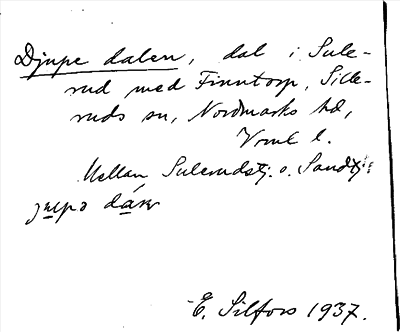 Djupe dalen, dal i Sule-
rud med Finntorp, Sille-
ruds sn, Nordmarks hd,
Vrml l.
Mellan Sulerudstj. o. Sandtj:
E. Silfors 1937.